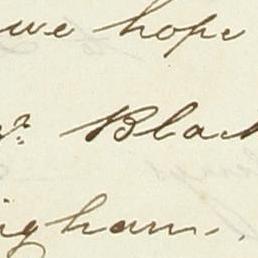 we hope
Mr. Black
igham.